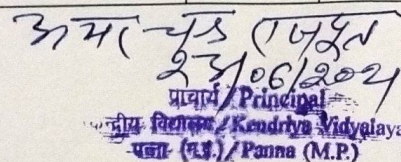 अमर सिंह राजपूत
23/06/2021
प्राचार्य / Principal
केन्द्रीय विद्यालय / Kendriya Vidyalaya
पन्ना (म.प्र.) / Panna (M.P.)